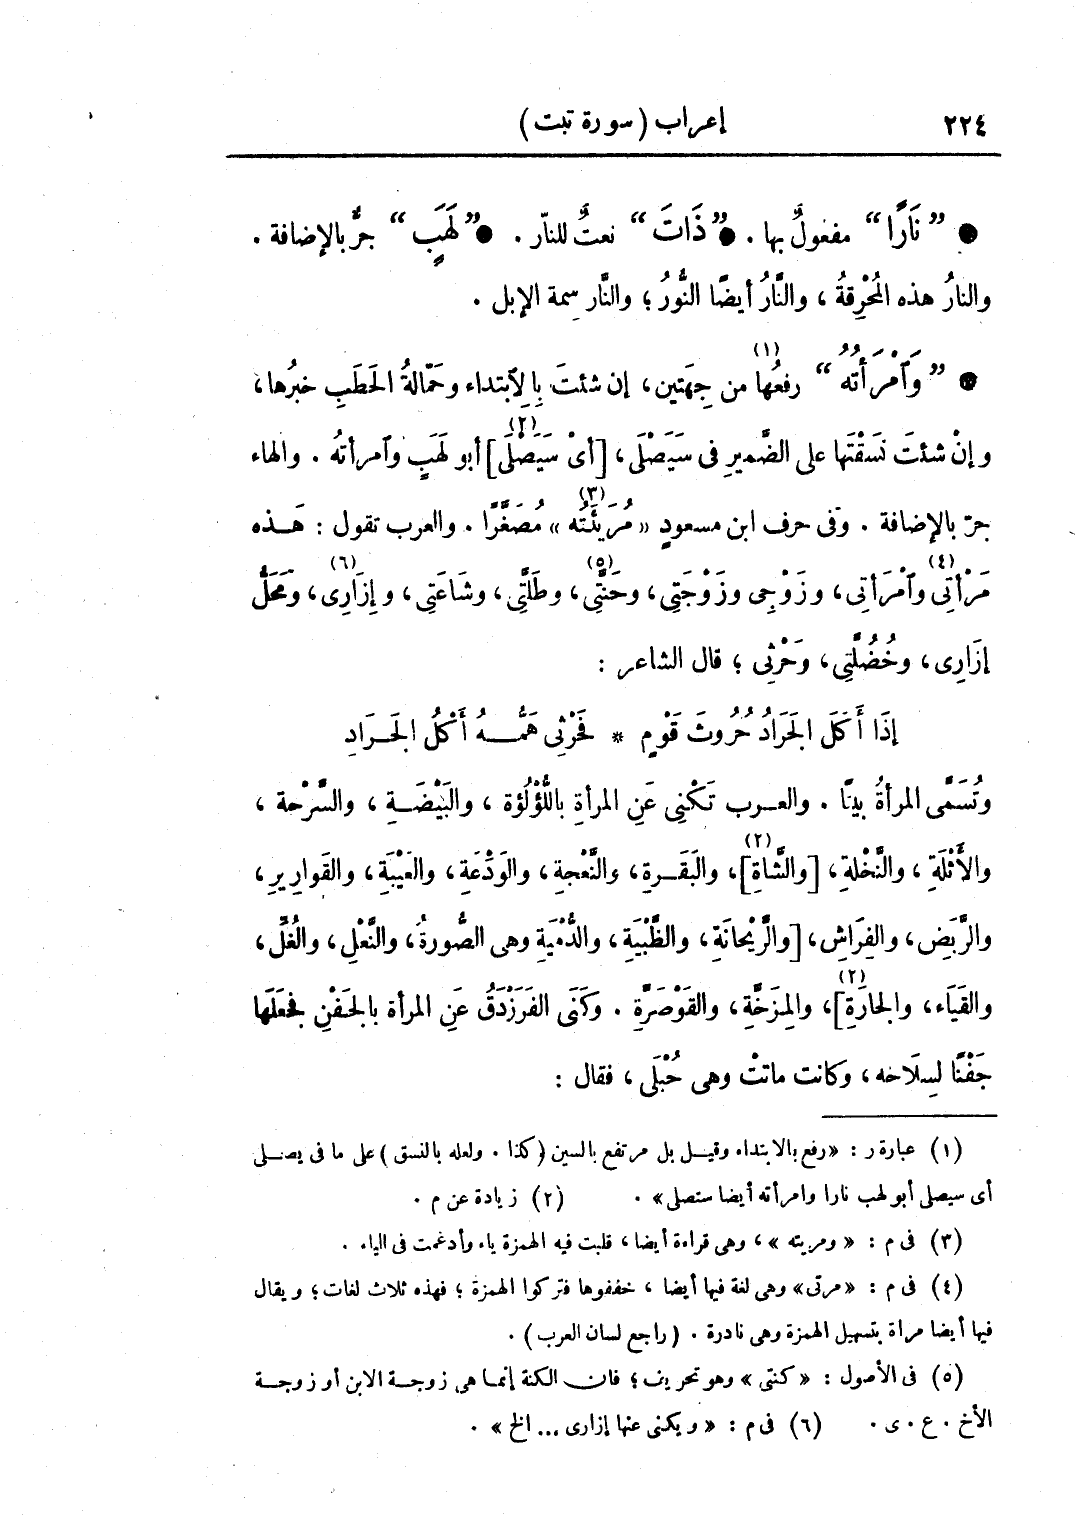 ٢٢٤ إعراب (سورة تبت)
● ”نَارًا“ مفعولٌ بها . ●”ذَاتَ“ نعتٌ للنّار . ●”لَهَبٍ“ جرٌّ بالإضافة .
والنارُ هذه المُحْرِقةُ ، والنَّارُ أيضًا النُّورُ ؛ والنَّار سِمة الإبل .
● ”وَٱمْرَأَتُهُ“ رفعُها(١) من جِهَتين، إن شئتَ بِالِٱبتداء وحَمّالةُ الحَطَبِ خبرُها،
وإنْ شئتَ نَسَقْتَها على الضَّميرِ فى سَيَصْلَى، [أىْ سَيَصْلَى](٢) أبو لَهَبٍ وٱمرأتهُ . والهاء
جرّ بالإضافة . وفى حرف ابن مسعودٍ «مُرَيْئَتُه(٣)» مُصَغَّرًا . والعرب تقول : هَـذه
مَرْأتِى(٤) وٱمْرَأتِى، وزَوْجِى وزَوْجَتِى، وحَنَّتِى(٥)، وطَلَّتِى، وشَاعَتِى، وإِزَارِى(٦)، ومَحَلُّ
إزَارِى، وخُضُلَّتِى، وحَرْثِى ؛ قال الشاعر :
إذَا أَكَلَ الجَرَادُ حُرُوثَ قَوْمٍ * فَحَرْثِى هَمُّـهُ أَكْلُ الجَـرَادِ
وتُسَمَّى المرأةُ بيتًا . والعـرب تَكْنِى عَنِ المرأةِ باللُّؤْلُؤة ، والبَيْضَـةِ ، والسَّرْحة ،
والأَثْلَةِ ، والنَّخْلةِ، [والشَّاةِ](٢)، والبَقَـرةِ، والنَّعْجةِ، والوَدْعَةِ، والعَيْبَةِ، والقَوارِيرِ،
والرَّبَضِ، والفِرَاشِ، [والرَّيْحانَةِ، والظَّبْيَةِ، والدُّمْيَةِ وهى الصُّورةُ، والنَّعْلِ، والغُلِّ،
والقَيَاء، والجارَةِ](٢)، والمِزَخَّةِ، والقَوْصَرَّةِ . وكَنَى الفَرَزْدَقُ عَنِ المرأة بالجَفْنِ فجعَلَها
جَفْنًا لسِلَاحه، وكانت ماتتْ وهى حُبْلَى، فقال :
(١) عبارة ر : «رفع بالابتداء وقيـل بل مرتفع بالسين (كذا . ولعله بالنسق) على ما فى يصـلى
أى سيصلى أبو لهب نارا وامرأته أيضا ستصلى» . (٢) زيادة عن م .
(٣) فى م : «ومريته»، وهى قراءة أيضا، قلبت فيه الهمزة ياء وأدغمت فى الياء .
(٤) فى م : «مرتى» وهى لغة فيها أيضا ، خففوها فتركوا الهمزة ؛ فهذه ثلاث لغات ؛ ويقال
فيها أيضا مراة بتسهيل الهمزة وهى نادرة . (راجع لسان العرب) .
(٥) فى الأصول : «كنتى» وهو تحريف ؛ فان الكنة إنمـا هى زوجـة الابن أو زوجـة
الأخ . ع . ى . (٦) فى م : «ويكنى عنها إزارى ... الخ» .